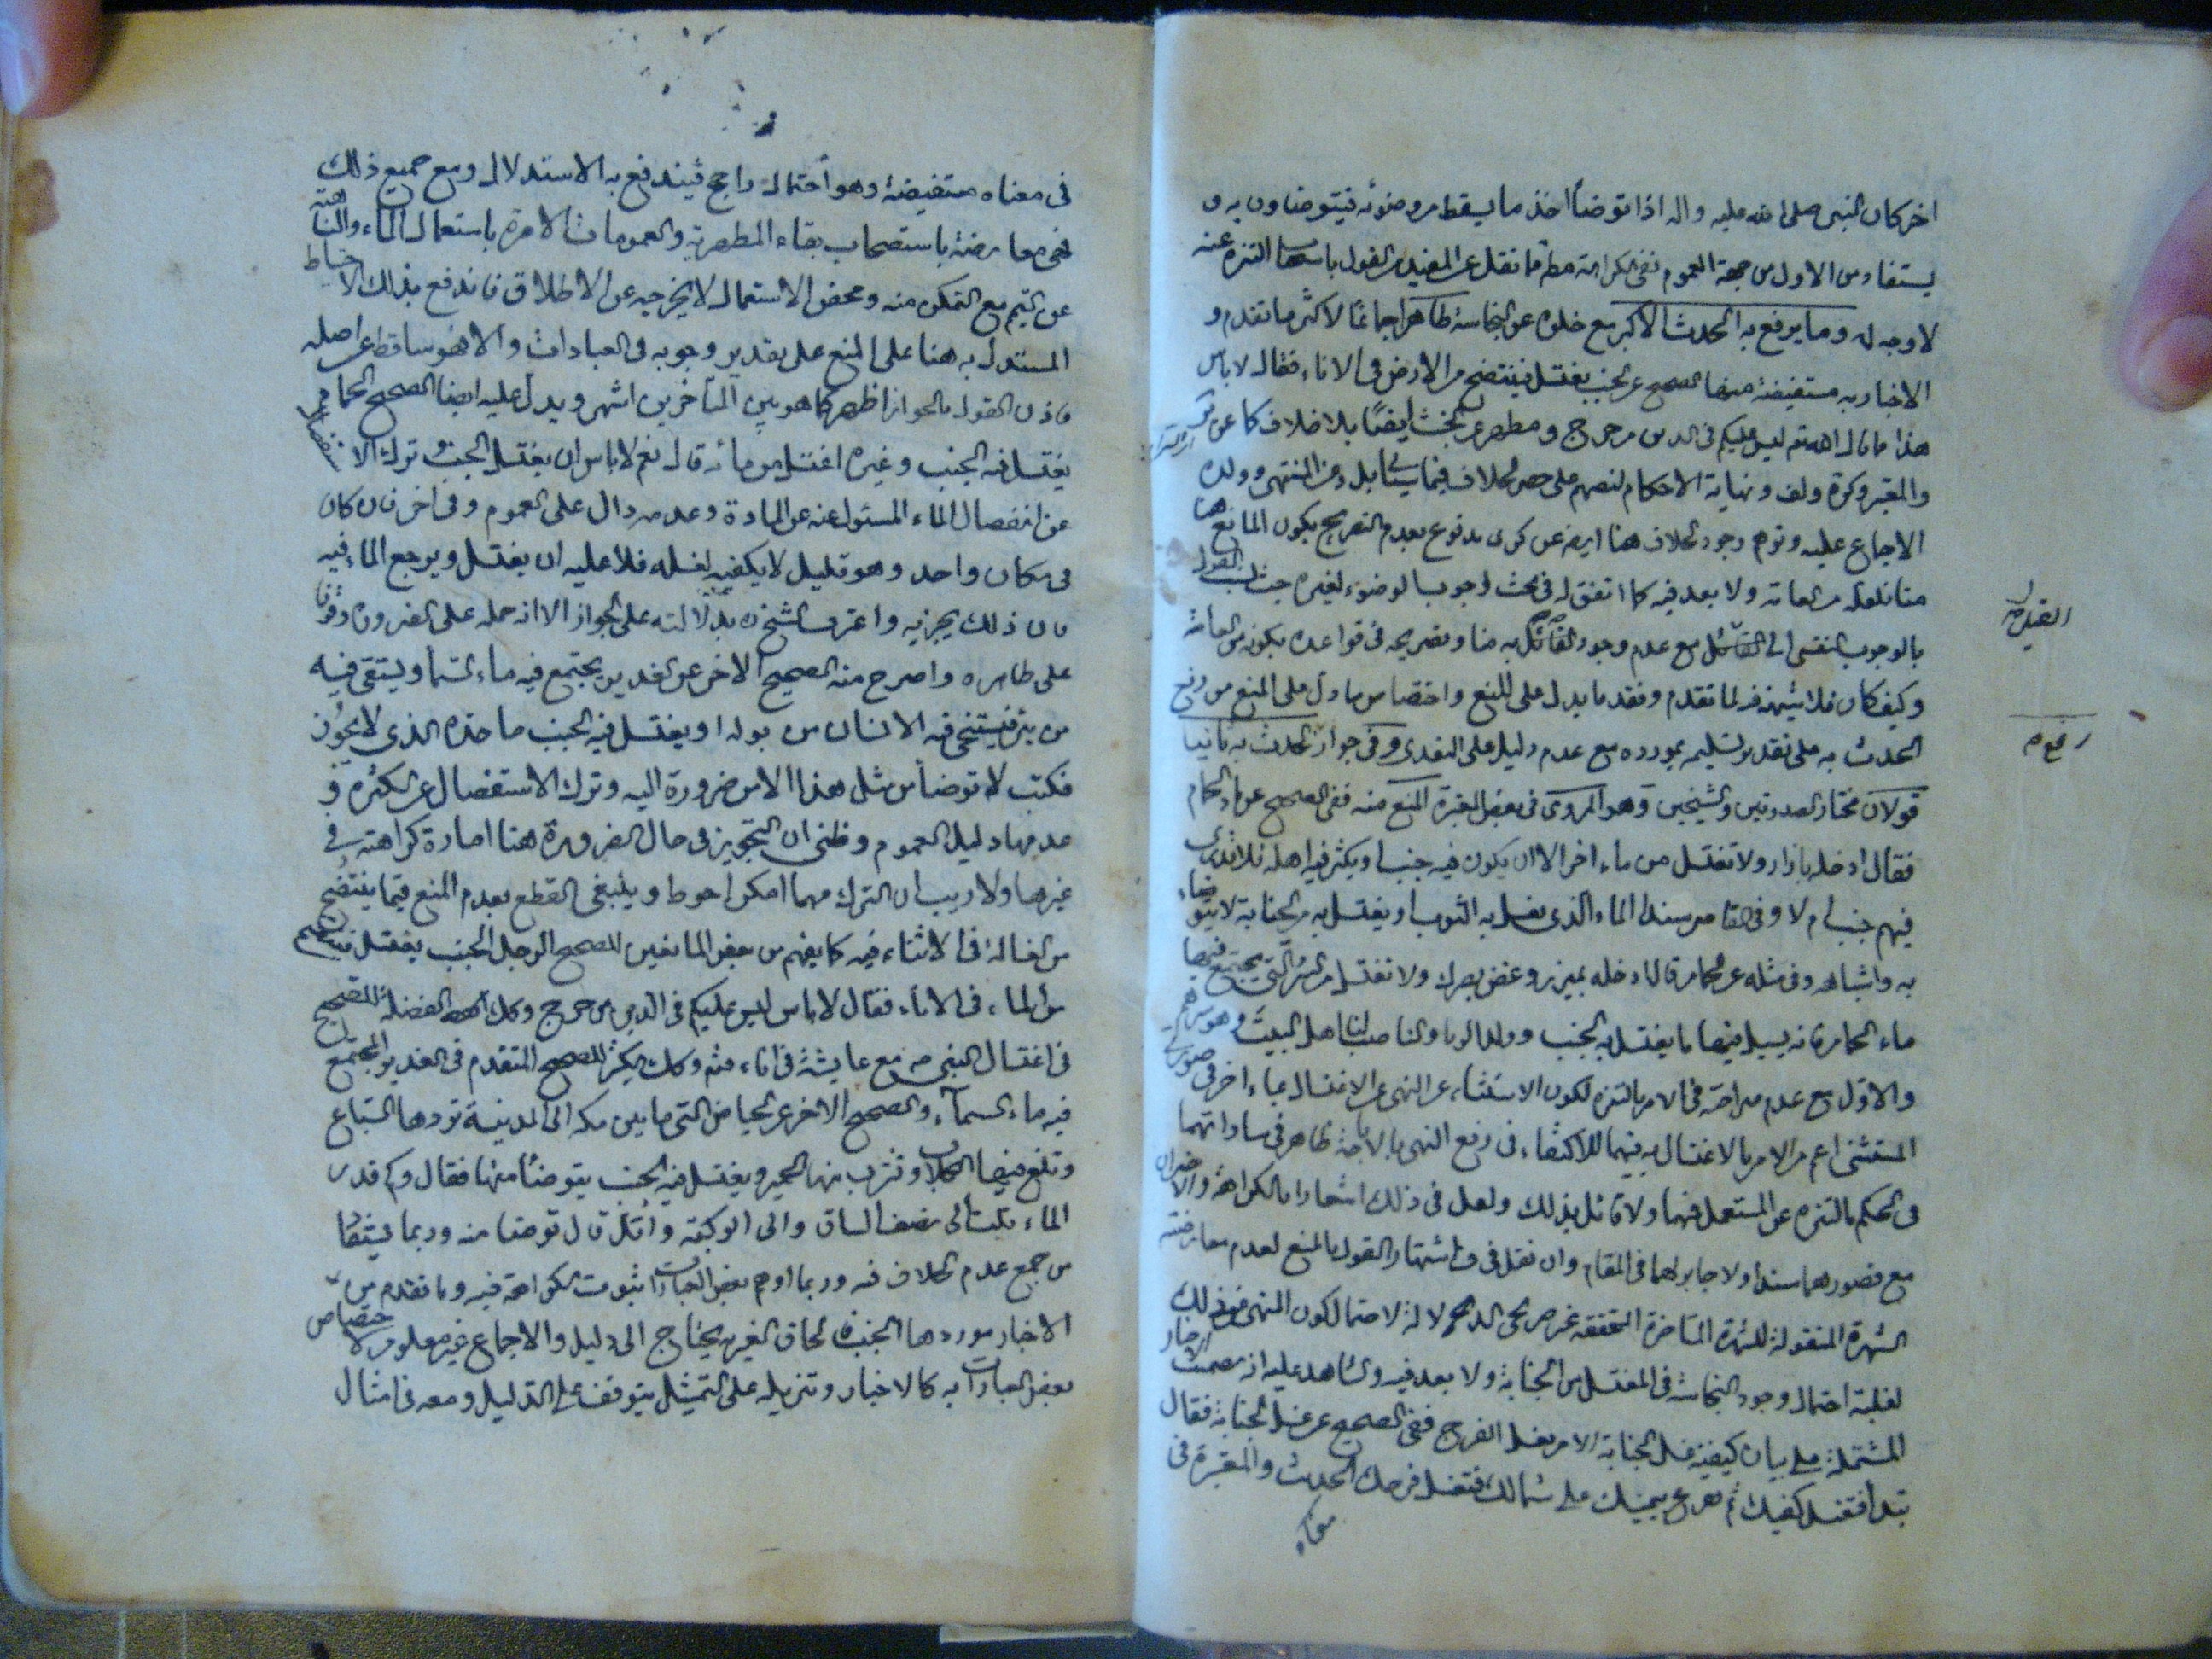 اخر كان النبى صلى الله عليه واله اذا توضأ اخذ ما يسقط من وضوئه فيتوضاون به و
يستفاد من الاول من جهة العموم نفى الكراهة مط فما نقل عن المفيد من القول باستحباب التنزه عنه
لا وجه له وما يرفع به الحدث الاكبر مع خلوه عن النجاسة طاهر اجماعًا لاكثر ما تقدم و
الاخبار به مستفيضة منها الصحيح عن الجنب يغتسل فينتضح من الارض فى الاناء فقال لا باس
هذا ما قال الله تع ليس عليكم فى الدين من حرج ومطهر عن الخبث ايضًا بلا خلاف كما عن
والمعتبر وكرة ولف ونهاية الاحكام لنصهم على حصر الخلاف فيما سيأتى بل وعن المنتهى وولده
الاجماع عليه وتوهم وجود الخلاف هنا ايضا عن كرى مدفوع بعدم التصريح بكون المانع هنا
منا فلعله من العامة ولا بعد فيه كما اتفق له فى بحث وجوب الوضوء لغيره حيث نسب القول
بالوجوب النفسى الى القائل مع عدم وجود القائل به منا وتصريحه فى قواعده بكونه من العامة
وكيف كان فلا شبهة فيه لما تقدم وفقد ما يدل على المنع واختصاص ما دل على المنع من رفع
الحدث به على تقدير تسليمه بمورده مع عدم دليل على التعدى وفى جواز رفع الحدث به ثانيا
قولان مختار الصدوقين والشيخين وهو المروى فى بعض المعتبرة المنع منه ففى الصحيح عن ماء الحمام
فقال ادخله بازار ولا تغتسل من ماء اخر الا ان يكون فيه جنب او يكثر فيه اهله فلا تدرى
فيهم جنب ام لا وفى القاصر سندا الماء الذى يغسل به الثوب او يغتسل به من الجنابة لا يتوضأ
به واشباهه وفى مثله عن الحمام قال ادخله بميزر وغض بصرك ولا تغتسل من البئر التى يجتمع فيها
ماء الحمام فانه يسيل فيها ما يغتسل به الجنب وولد الزنا والناصب لنا اهل البيت وهو شرهم
والاول مع عدم صراحته فى الامر بالتنزه لكون الاستثناء عن النهى عن الاغتسال بماء اخر فى صورتى
المستثنى اعم من الامر بالاغتسال به فيهما للاكتفاء فى رفع النهى بالاباحة ظاهر فى مساواتهما
فى الحكم بالتنزه عن المستعمل فيهما ولا قائل بذلك ولعل فى ذلك اشعارا بالكراهة والاخيران
مع قصورهما سندا ولا جابر لهما فى المقام وان نقل فى ف اشتهار القول بالمنع لعدم معارضته
الشهرة المنقولة للشهرة المتأخرة المتحققة غير صريحى الدلالة لاحتمال كون المنهى عنه ذلك
لغلبة احتمال وجود النجاسة فى المغتسل من الجنابة ولا بعد فيه والشاهد عليه انه تضمنت الاخبار
المشتملة على بيان كيفية غسل الجنابة الامر بغسل الفرج ففى الصحيح عن غسل الجنابة فقال
تبدأ فتغسل كفيك ثم تفرغ بيمينك على شمالك فتغسل فرجك الحديث والمعتبرة فى
معناه
فى معناه مستفيضة وهو احتمال راجح فيندفع به الاستدلال ومع جميع ذلك
فهى معارضة باستصحاب بقاء المطهرية والعمومات الامرة باستعمال الماء والناهية
عن التيمم مع التمكن منه ومحض الاستعمال لا يخرجه عن الاطلاق فاندفع بذلك الاحتياط
المستدل به هنا على المنع على تقدير وجوبه فى العبادات والا فهو ساقط عن اصله
فاذن القول بالجواز اظهر كما هو بين المتأخرين اشهر ويدل عليه ايضا الصحيح الحمام
يغتسل فيه الجنب وغيره اغتسل من مائه قال نعم لا باس ان يغتسل الجنب وترك الاستفصال
عن انفصال الماء المسئول عنه عن المادة وعدمه دال على العموم وفى اخر فان كان
فى مكان واحد وهو قليل لا يكفيه لغسله فلا عليه ان يغتسل ويرجع الماء فيه
فان ذلك يجزيه واعترف الشيخ ره بدلالته على الجواز الا انه حمله على الضرورة وقوفا
على ظاهره واصرح منه الصحيح الاخر عن الغدير يجتمع فيه ماء السماء ويستقى فيه
من بئر فيستنجى فيه الانسان من بول او يغتسل فيه الجنب ما حده الذى لا يجوز
فكتب لا توضأ من مثل هذا الا من ضرورة اليه وترك الاستفصال عن الكثرة و
عدمها دليل العموم وظنى ان التجويز فى حال الضرورة هنا امارة كراهته فى
غيرها ولا ريب ان الترك مهما امكن احوط وينبغى القطع بعدم المنع فيما ينتضح
من الغسالة فى الاثناء فيه كما يفهم من بعض المانعين للصحيح الرجل الجنب يغتسل فينتضح
من الماء فى الاناء فقال لا باس ليس عليكم فى الدين من حرج وكذلك الفضلة للصحيح
فى اغتسال النبى ص مع عايشة فى اناء منه وكذلك الكثير للصحيح المتقدم فى الغدير المجتمع
فيه ماء السماء والصحيح الاخر عن الحياض التى ما بين مكه الى المدينة تردها السباع
وتلغ فيها الكلاب وتشرب منها الحمير ويغتسل فيه الجنب يتوضأ منها فقال وكم قدر
الماء قلت الى نصف الساق والى الركبة واقل قال توضا منه وربما يستفاد
من جمع عدم الخلاف فيه وربما اوهم بعض العبارات ثبوت الكراهة فيه وما تقدم من
الاخبار موردها الجنب فالحاق الغير به يحتاج الى دليل والاجماع غير معلوم لاختصاص
بعض العبارات به كالاخبار وتنزيله على التمثيل يتوقف على الدليل ومعه فى امثال